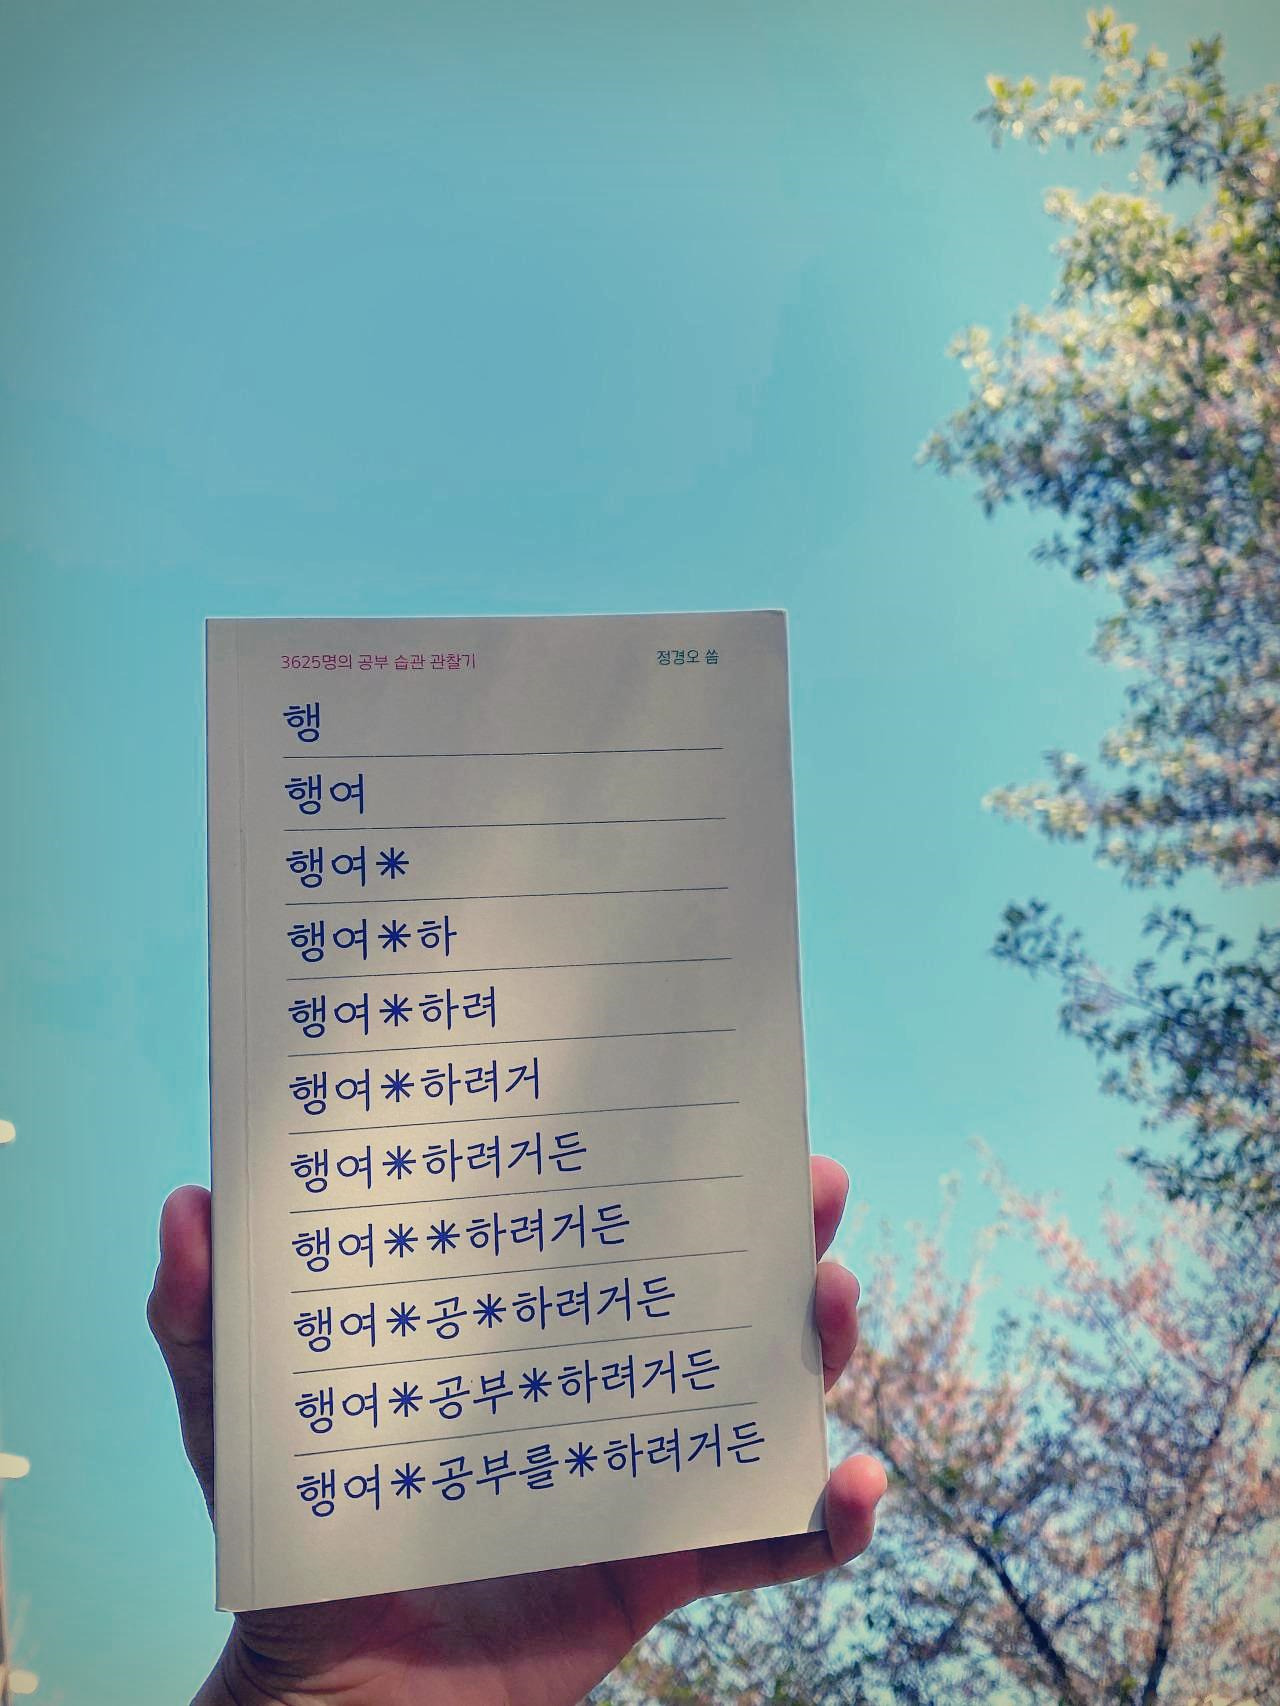 3625명의 공부 습관 관찰기 정경오 씀
행
행여
행여*
행여*하
행여*하려
행여*하려거
행여*하려거든
행여**하려거든
행여*공*하려거든
행여*공부*하려거든
행여*공부를*하려거든